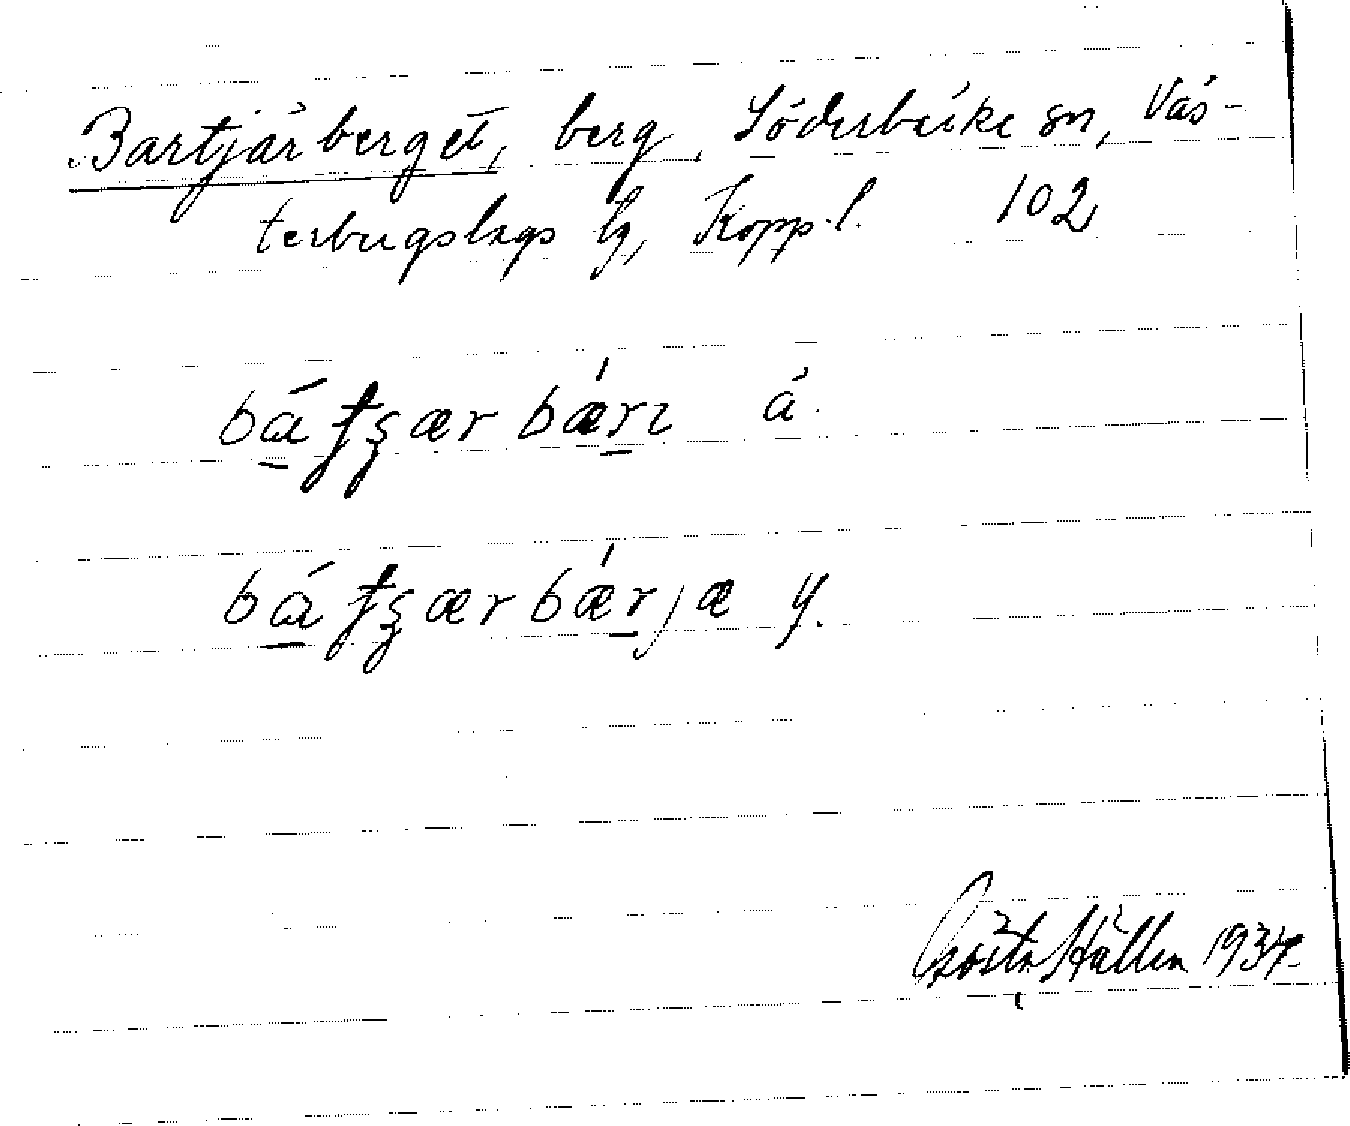 Bartjärberget, berg, Söderbärke sn, Väs-
terbergslags tg, Kopp. l. 102
bá̱ʈʂær bǽṟɪ ä.
bá̱ʈʂærbǽṟjæ y.
Gösta Hällen 1934.